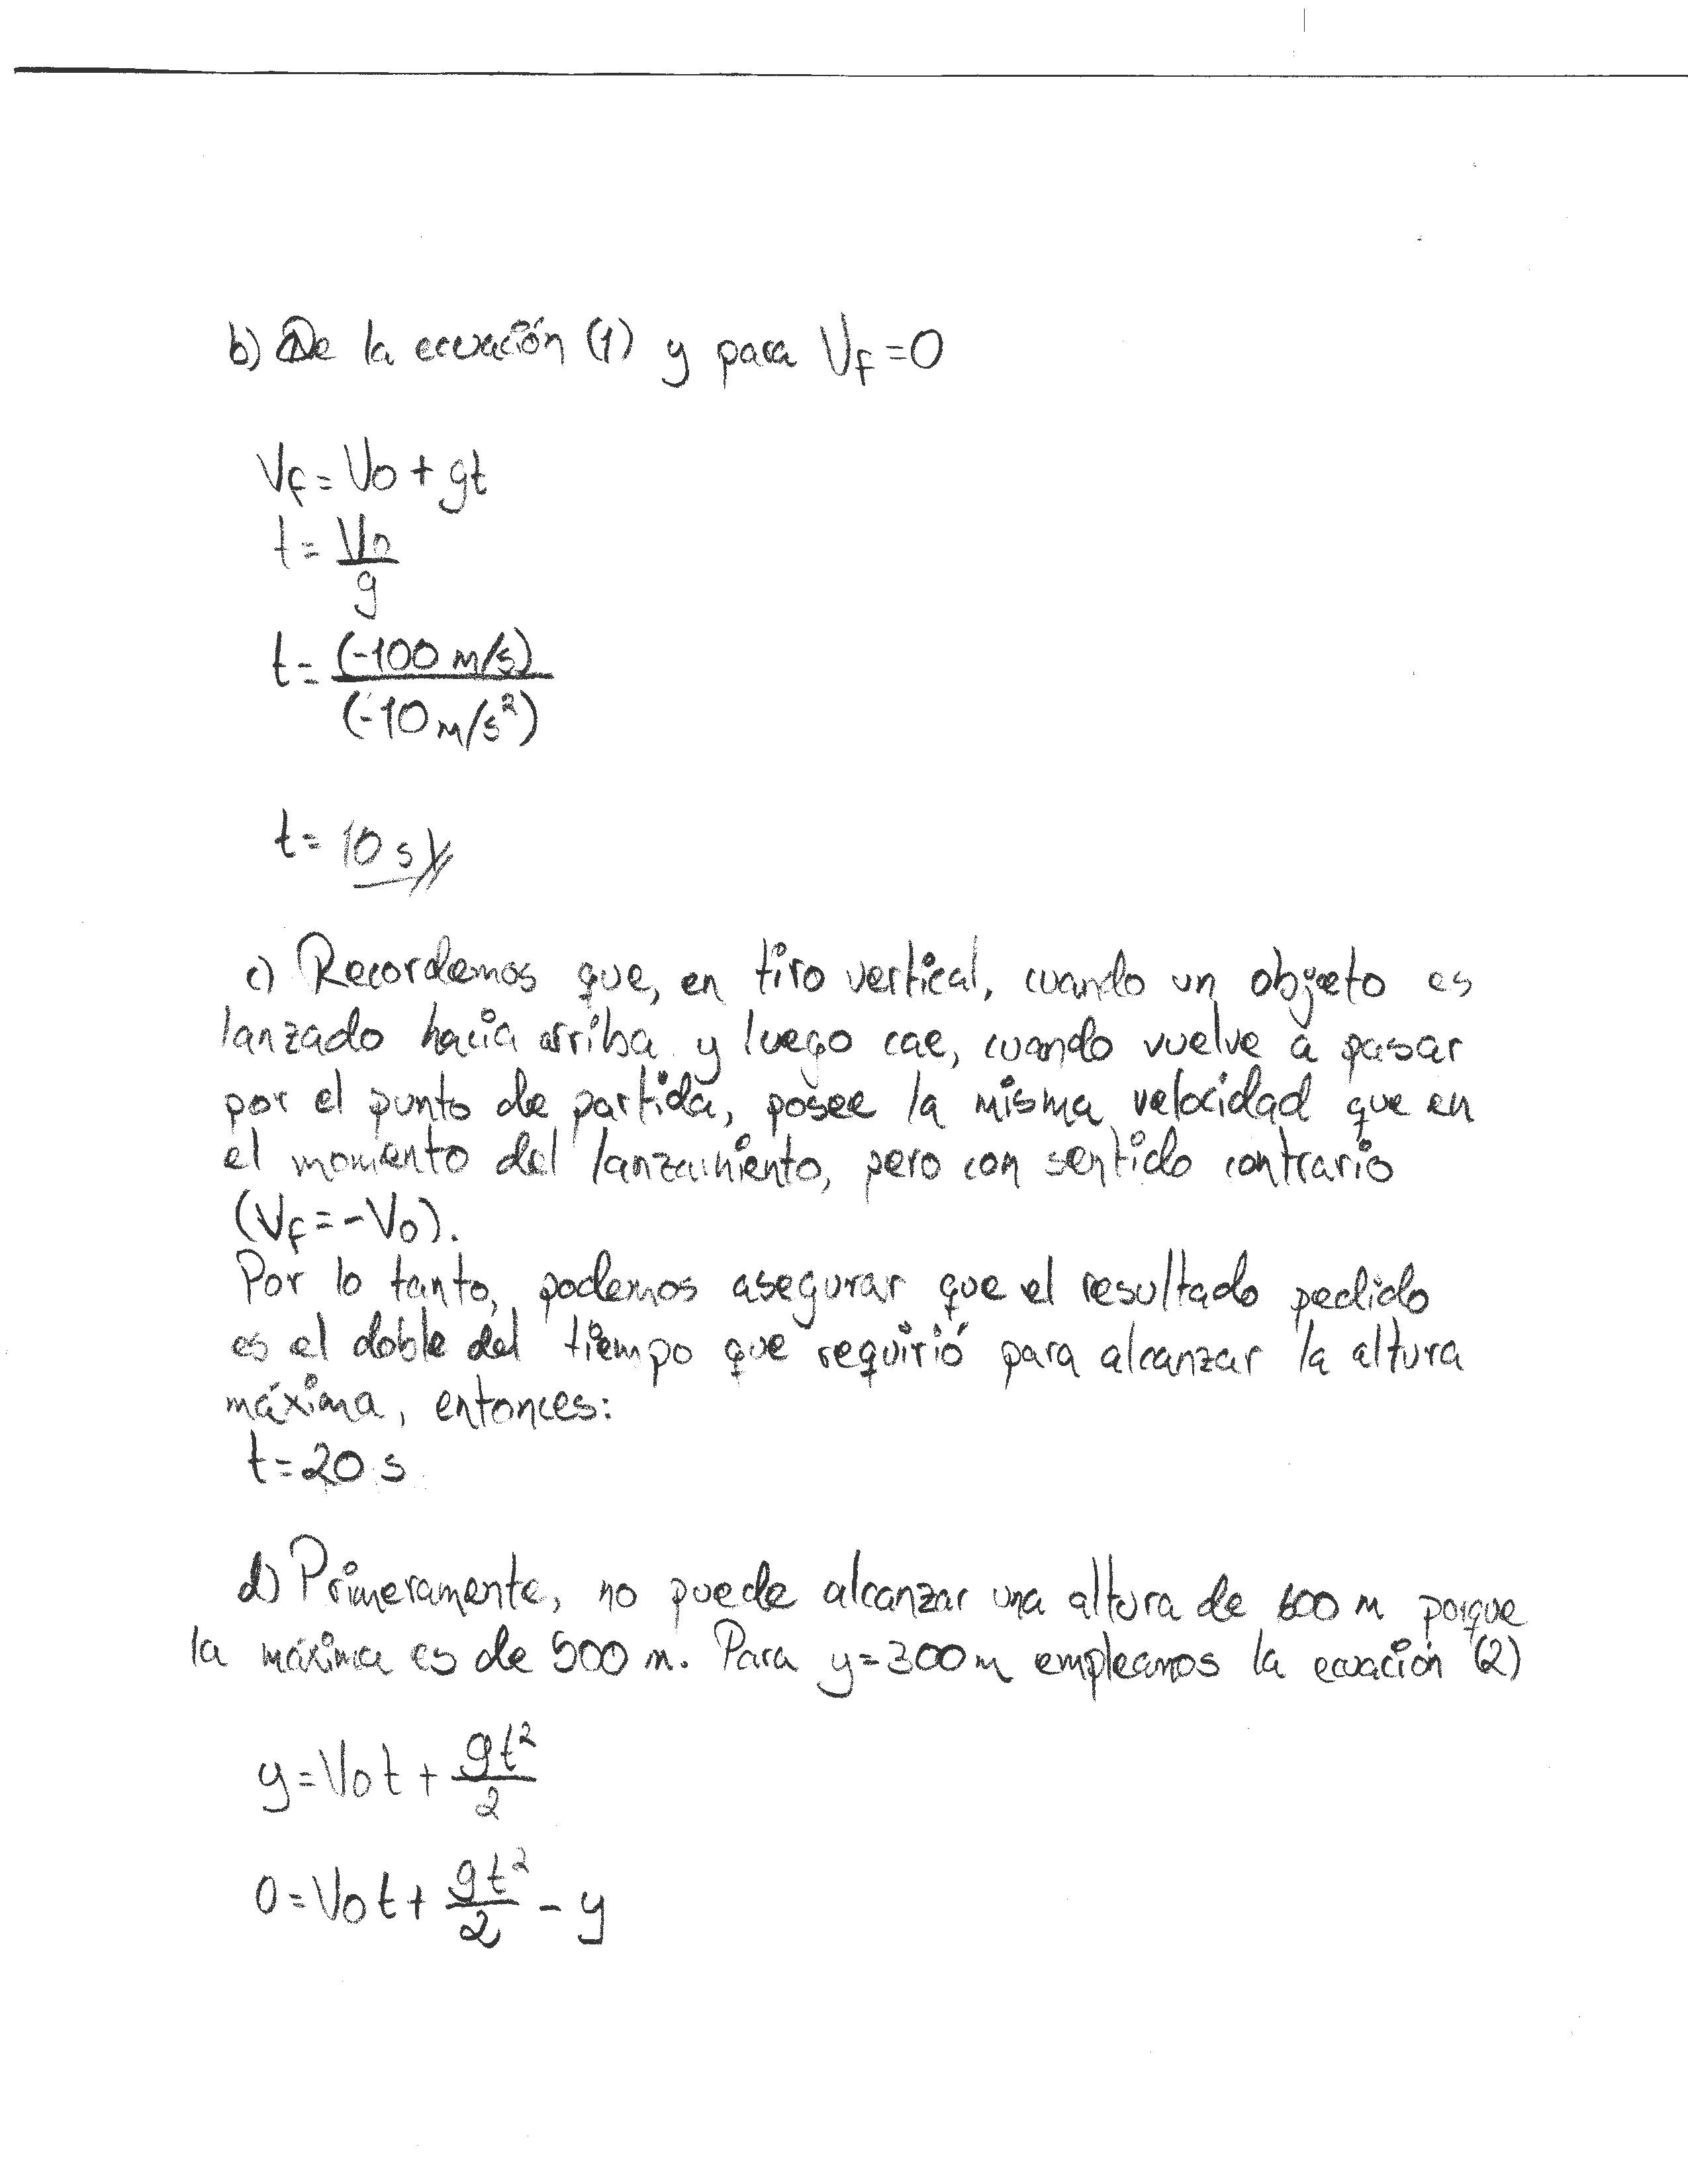 b) De la ecuación (1) y para Vf=0
Vf = Vo + gt
t = Vo/g
t = (-100 m/s)/(-10 m/s²)
t = 10 s
c) Recordemos que, en tiro vertical, cuando un objeto es
lanzado hacia arriba y luego cae, cuando vuelve a pasar
por el punto de partida, posee la misma velocidad que en
el momento del lanzamiento, pero con sentido contrario
(Vf=-Vo).
Por lo tanto, podemos asegurar que el resultado pedido
es el doble del tiempo que requirió para alcanzar la altura
máxima, entonces:
t=20 s
d) Primeramente, no puede alcanzar una altura de 600 m porque
la máxima es de 500 m. Para y=300m empleamos la ecuación (2)
y = Vo t + gt²/2
0 = Vo t + gt²/2 - y